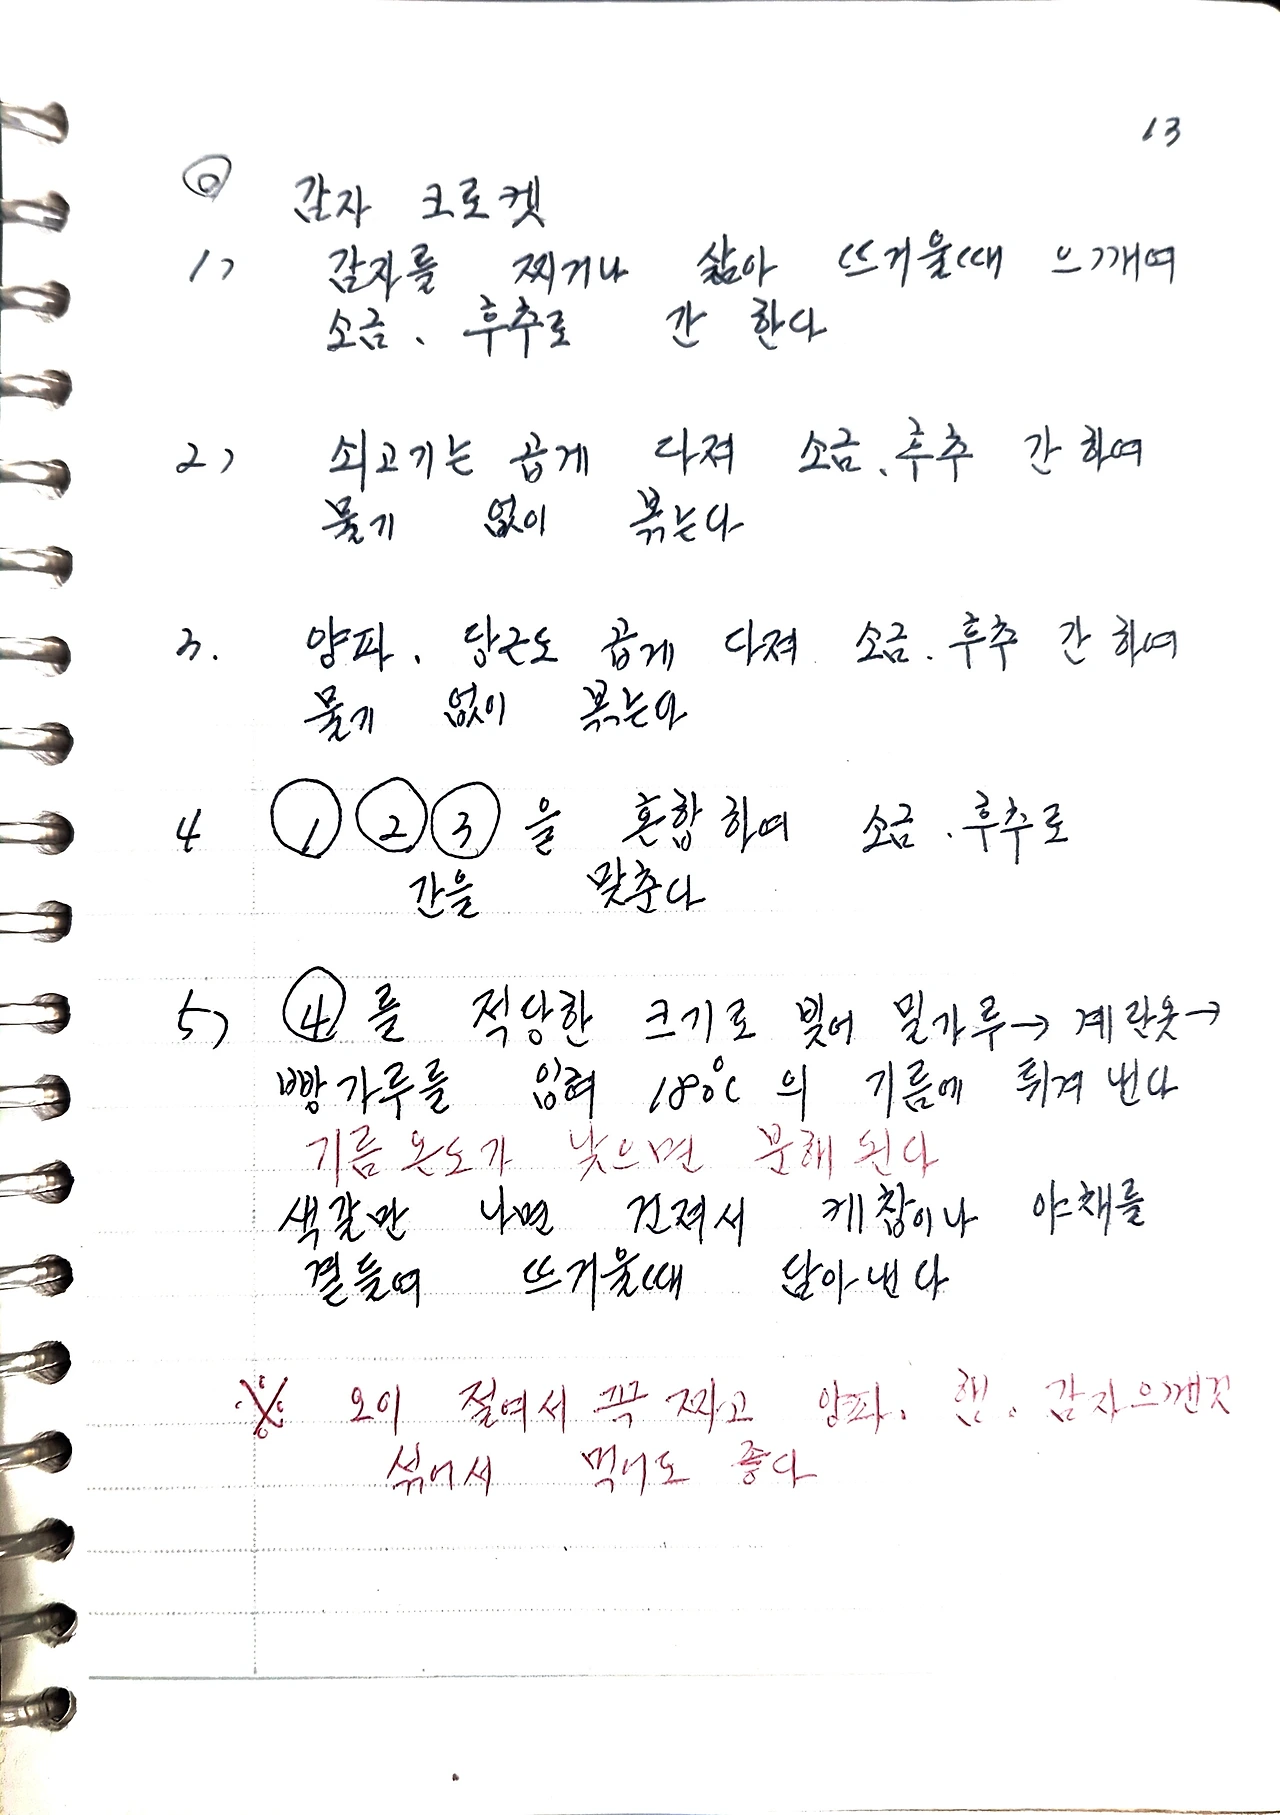 13
◎ 감자 크로켓
1) 감자를 찌거나 삶아 뜨거울때 으깨여
소금. 후추로 간 한다
2) 쇠고기는 곱게 다져 소금. 후추 간 하여
물기 없이 볶는다
3. 양파. 당근도 곱게 다져 소금. 후추 간 하여
물기 없이 볶는다
4 ① ② ③ 을 혼합 하여 소금. 후추로
간을 맞춘다
5) ④ 를 적당한 크기로 빚어 밀가루→ 계란옷→
빵가루를 입혀 180°C 의 기름에 튀겨 낸다
기름 온도가 낮으면 분해 된다
색갈만 나면 건져서 케찹이나 야채를
곁들여 뜨거울때 담아 낸다
※ 오이 절여서 꼭 짜고 양파. 햄. 감자으깬것
섞어서 먹어도 좋다